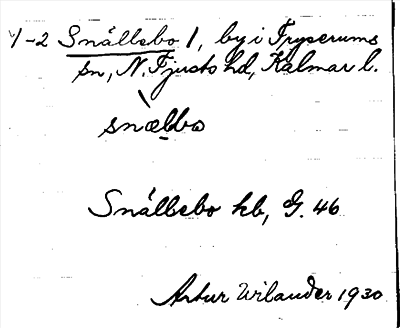 1-2 Snällebo 1, by i Tryserums
sn, N. Tjusts hd, Kalmar l.
snælbo
Snällebo kb, G. 46
Artur Wilander 1930